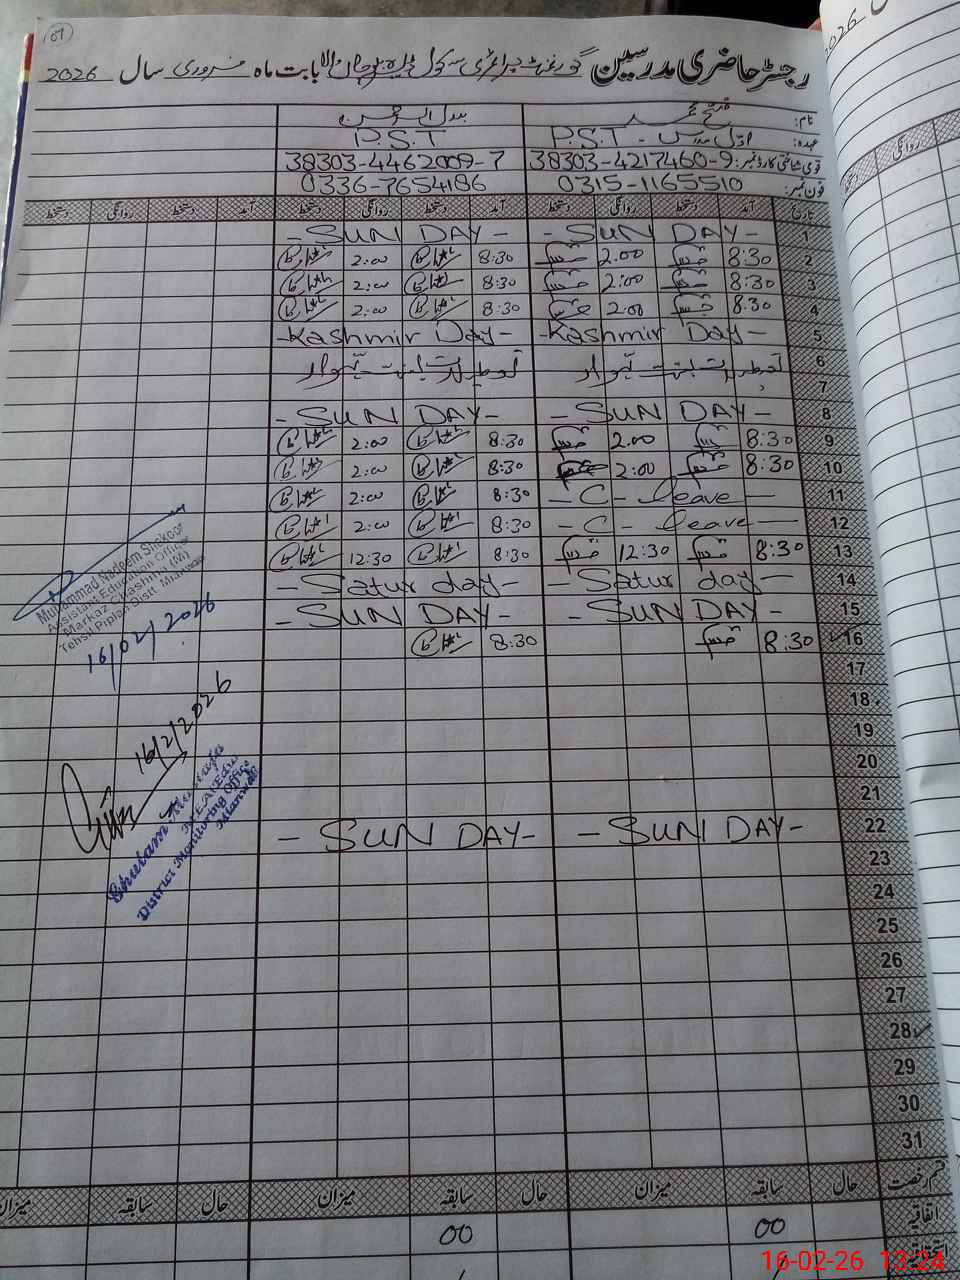 رجسٹر حاضری مدرسین گورنمنٹ پرائمری سکول ڈیرہ والا بابت ماہ فروری سال 2026
نام:
عہدہ: اول مدرس - P.S.T P.S.T
قومی شناختی کارڈ نمبر: 38303-4217460-9 38303-4462009-7
فون نمبر: 0315-1165510 0336-7654186
تاریخ آمد دستخط روانگی دستخط آمد دستخط روانگی دستخط آمد دستخط روانگی دستخط
1 - SUN DAY - - SUN DAY -
2 8:30 2.00 8:30 2:00
3 8:30 2:00 8:30 2:00
4 8:30 2.00 8:30 2:00
5 Kashmir Day - - Kashmir Day -
6 تعطیل بسنت تہوار تعطیل بسنت تہوار
7
8 - SUN DAY - - SUN DAY -
9 8:30 2.00 8:30 2:00
10 8:30 2:00 8:30 2:00
11 - C - leave - 8:30 2:00
12 - C - leave - 8:30 2:00
13 8:30 12:30 8:30 12:30
14 - Satur day - - Satur day -
15 - SUN DAY - - SUN DAY -
16 8:30 8:30
17
18
19
20
21
22 - SUN DAY - - SUN DAY -
23
24
25
26
27
28
29
30
31
قسم رخصت حال سابقہ میزان حال سابقہ میزان حال سابقہ میزان
اتفاقیہ 00 00
Muhammad Nadeem Shakoor
Assistant Education Officer
Markaz Chashma (M)
Tehsil Piplan Distt Mianwali
16/02/2026
16/2/2026
Ghulam
MEA
District Monitoring Office
Mianwali
16-02-26 13:24